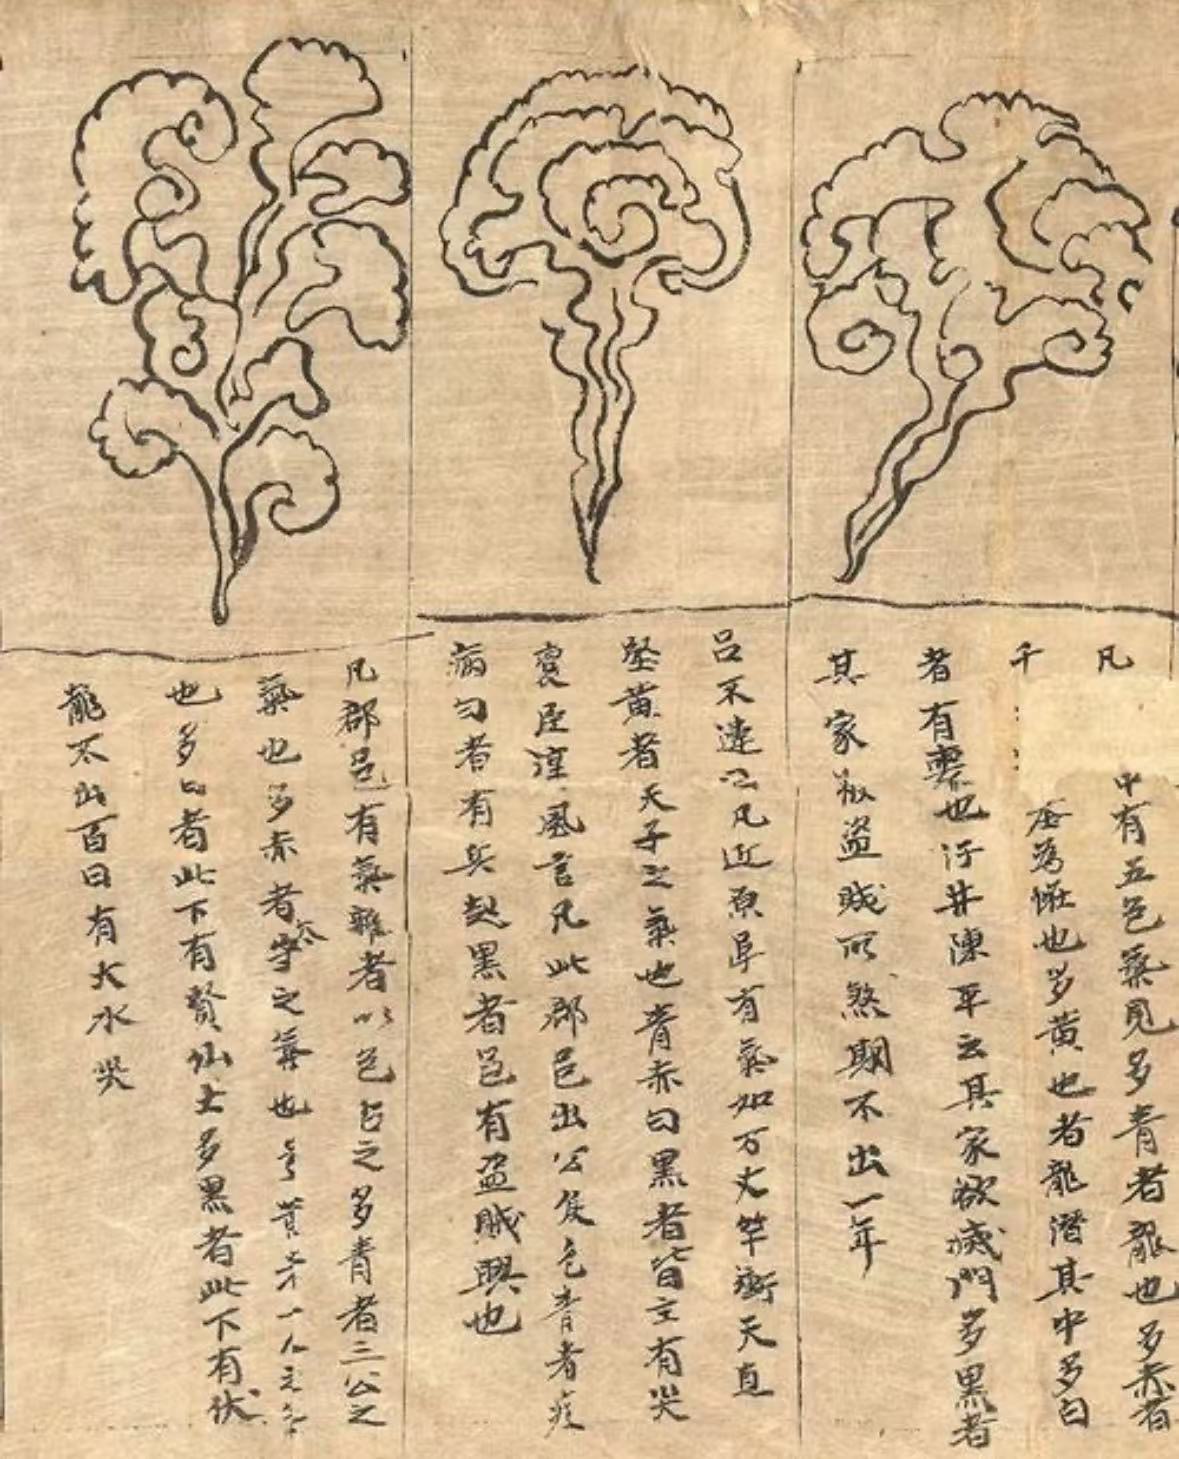 凡 中有五色氣見多青者龍也多赤者
千 為惟也多黃也者龍潛其中多白
者有也汙井陳平云其家欲滅門多黑者
其家被盜賊所煞期不出一年
呂不違云凡近原阜有氣如万丈竿衝天直
竪黃者天子之氣也青赤白黑者皆主有災
臣淳風言凡此郡邑出公侯色青者疾
病白者有兵起黑者邑有盜賊興也
凡郡邑有氣雜者以色占之多青者三公之
氣也多赤者之氣也多黃者一人之
也多白者此下有賢仙士多黑者此下有伏
龍不出百日有大水災